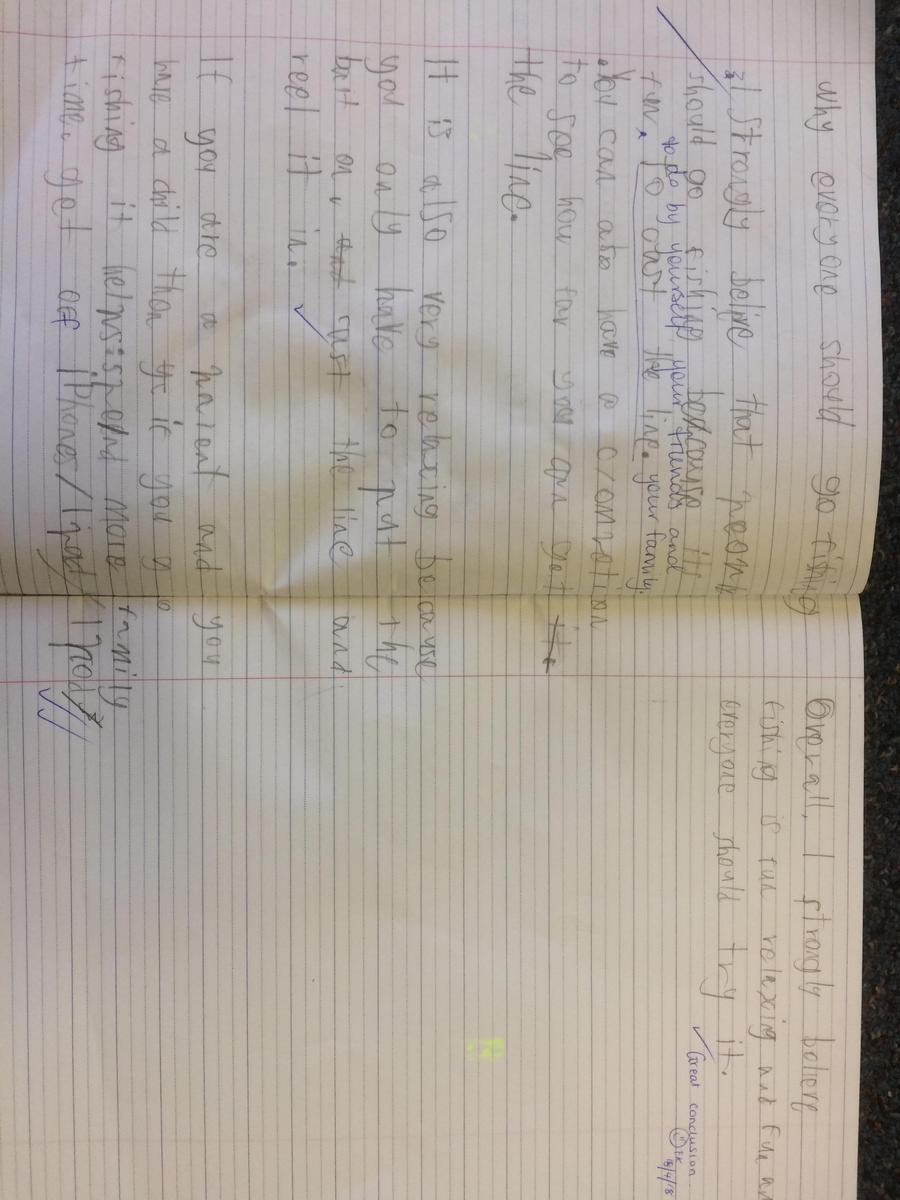 Why everyone should go fishing
I strongly belive that people
should go fishing because its
fun to do by yourself, your friends and
your family.
to cast the line.
You can also have a
to see how far you can get it
the line.
It is also very relaxing because
you only have to put the
bait on, and cast the line and
reel it in.
If you are a parent and you
have a child then if you go
fishing it helps spend more family
time. get off iPhones/Ipads/Ipods
Overall, I strongly believe
fishing is fun relaxing and
everyone should try it.
Great conclusion